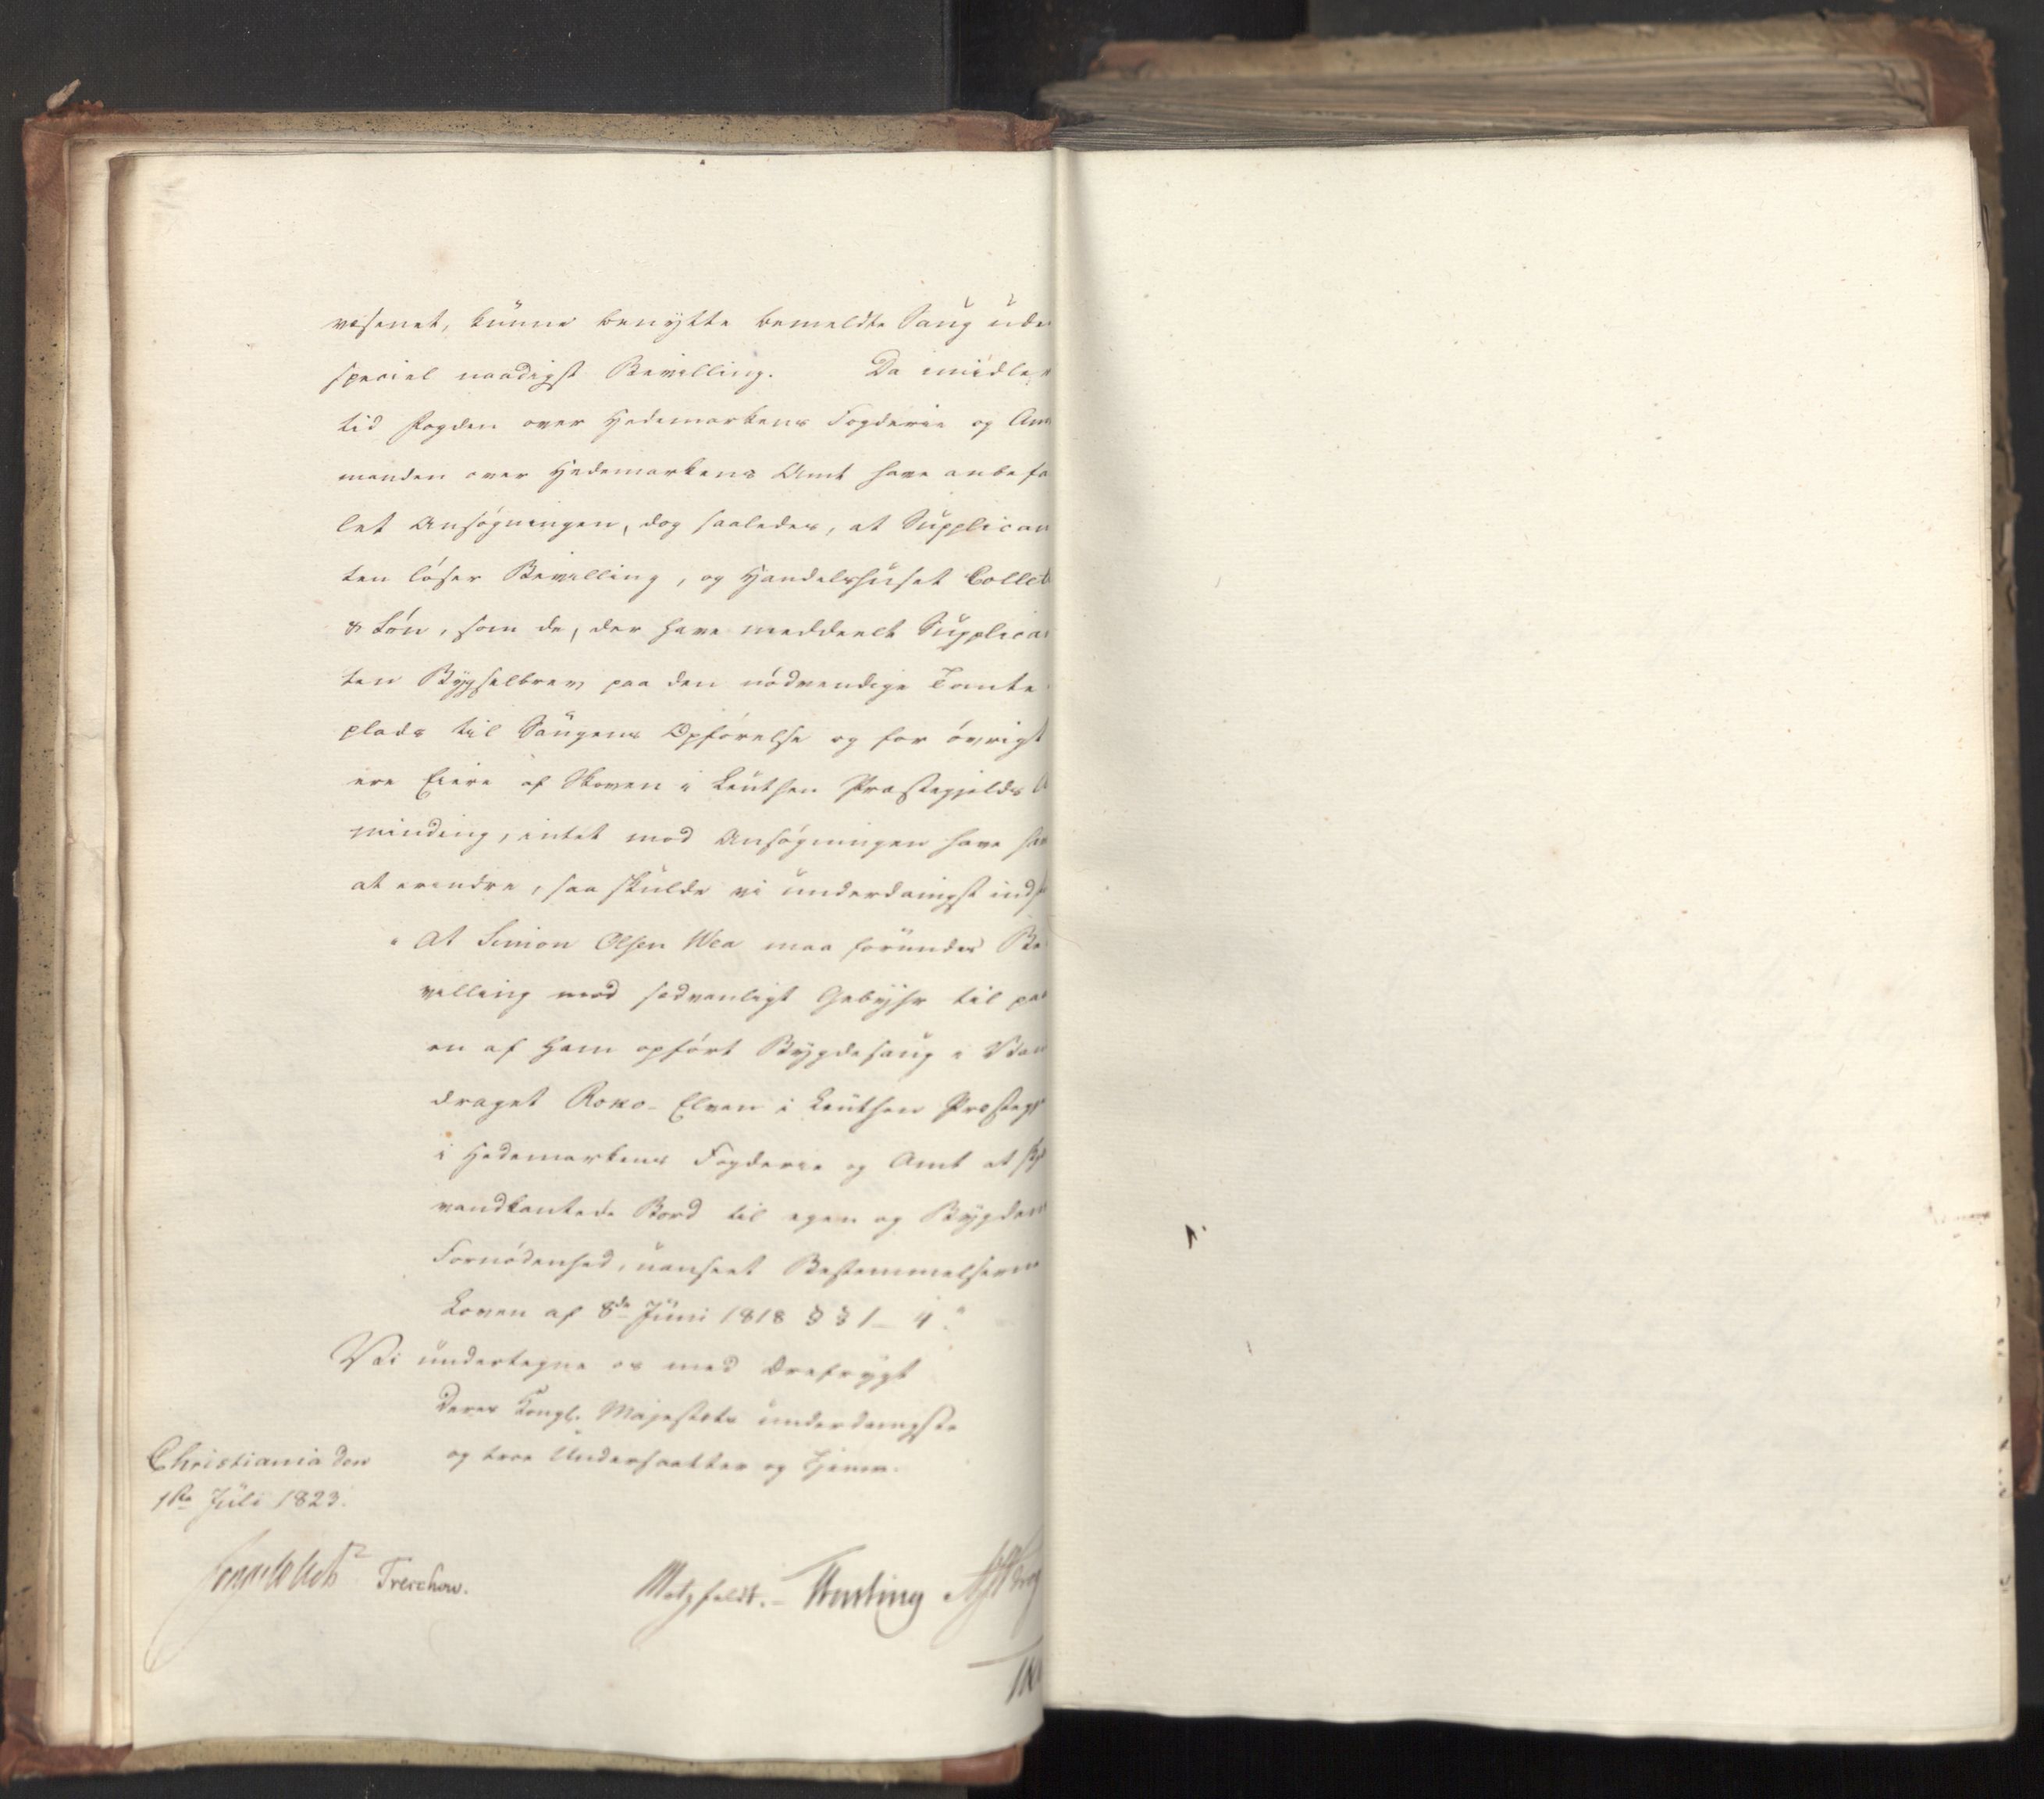 væsenet, kunne benytte bemeldte Saug uden
speciel naadigst Bevilling. Da imidler
tid Fogden over Hedemarkens Fogderie og Amt
manden over Hedemarkens Amt have anbefa
let Ansøgningen, dog saaledes, at Supplican
ten løser Bevilling, og Handelshuset Collett
& Søn, som de, der have meddeelt Supplican
ten Bygselbrev paa den nødvendige Tomte
plads til Saugens Opførelse og for øvrigt
ere Eiere af Skoven i Leuthen Præstegjelds A
minding, intet mod Ansøgningen have hav
at erindre, saa skulde vi underdanigst ind
"At Simon Olsen Wea maa forundes Be
villing mod sedvanligt Gebyhr til paa
en af ham opført Bygdesaug i Van
draget Roko-Elven i Leuthen Præstegj
i Hedemarkens Fogderie og Amt at skj
vandkantede Bord til egen og Bygdens
Fornødenhed, uanseet Bestemmelserne
Loven af 8de Juni 1818 §§ 1-4."
Vi undertegne os med Ærefrygt
Deres Kongl. Majestæts underdanigste
Christiania den og troe Undersaatter og Tjenere.
1ste Juli 1823.
Treschow. Motzfeldt.